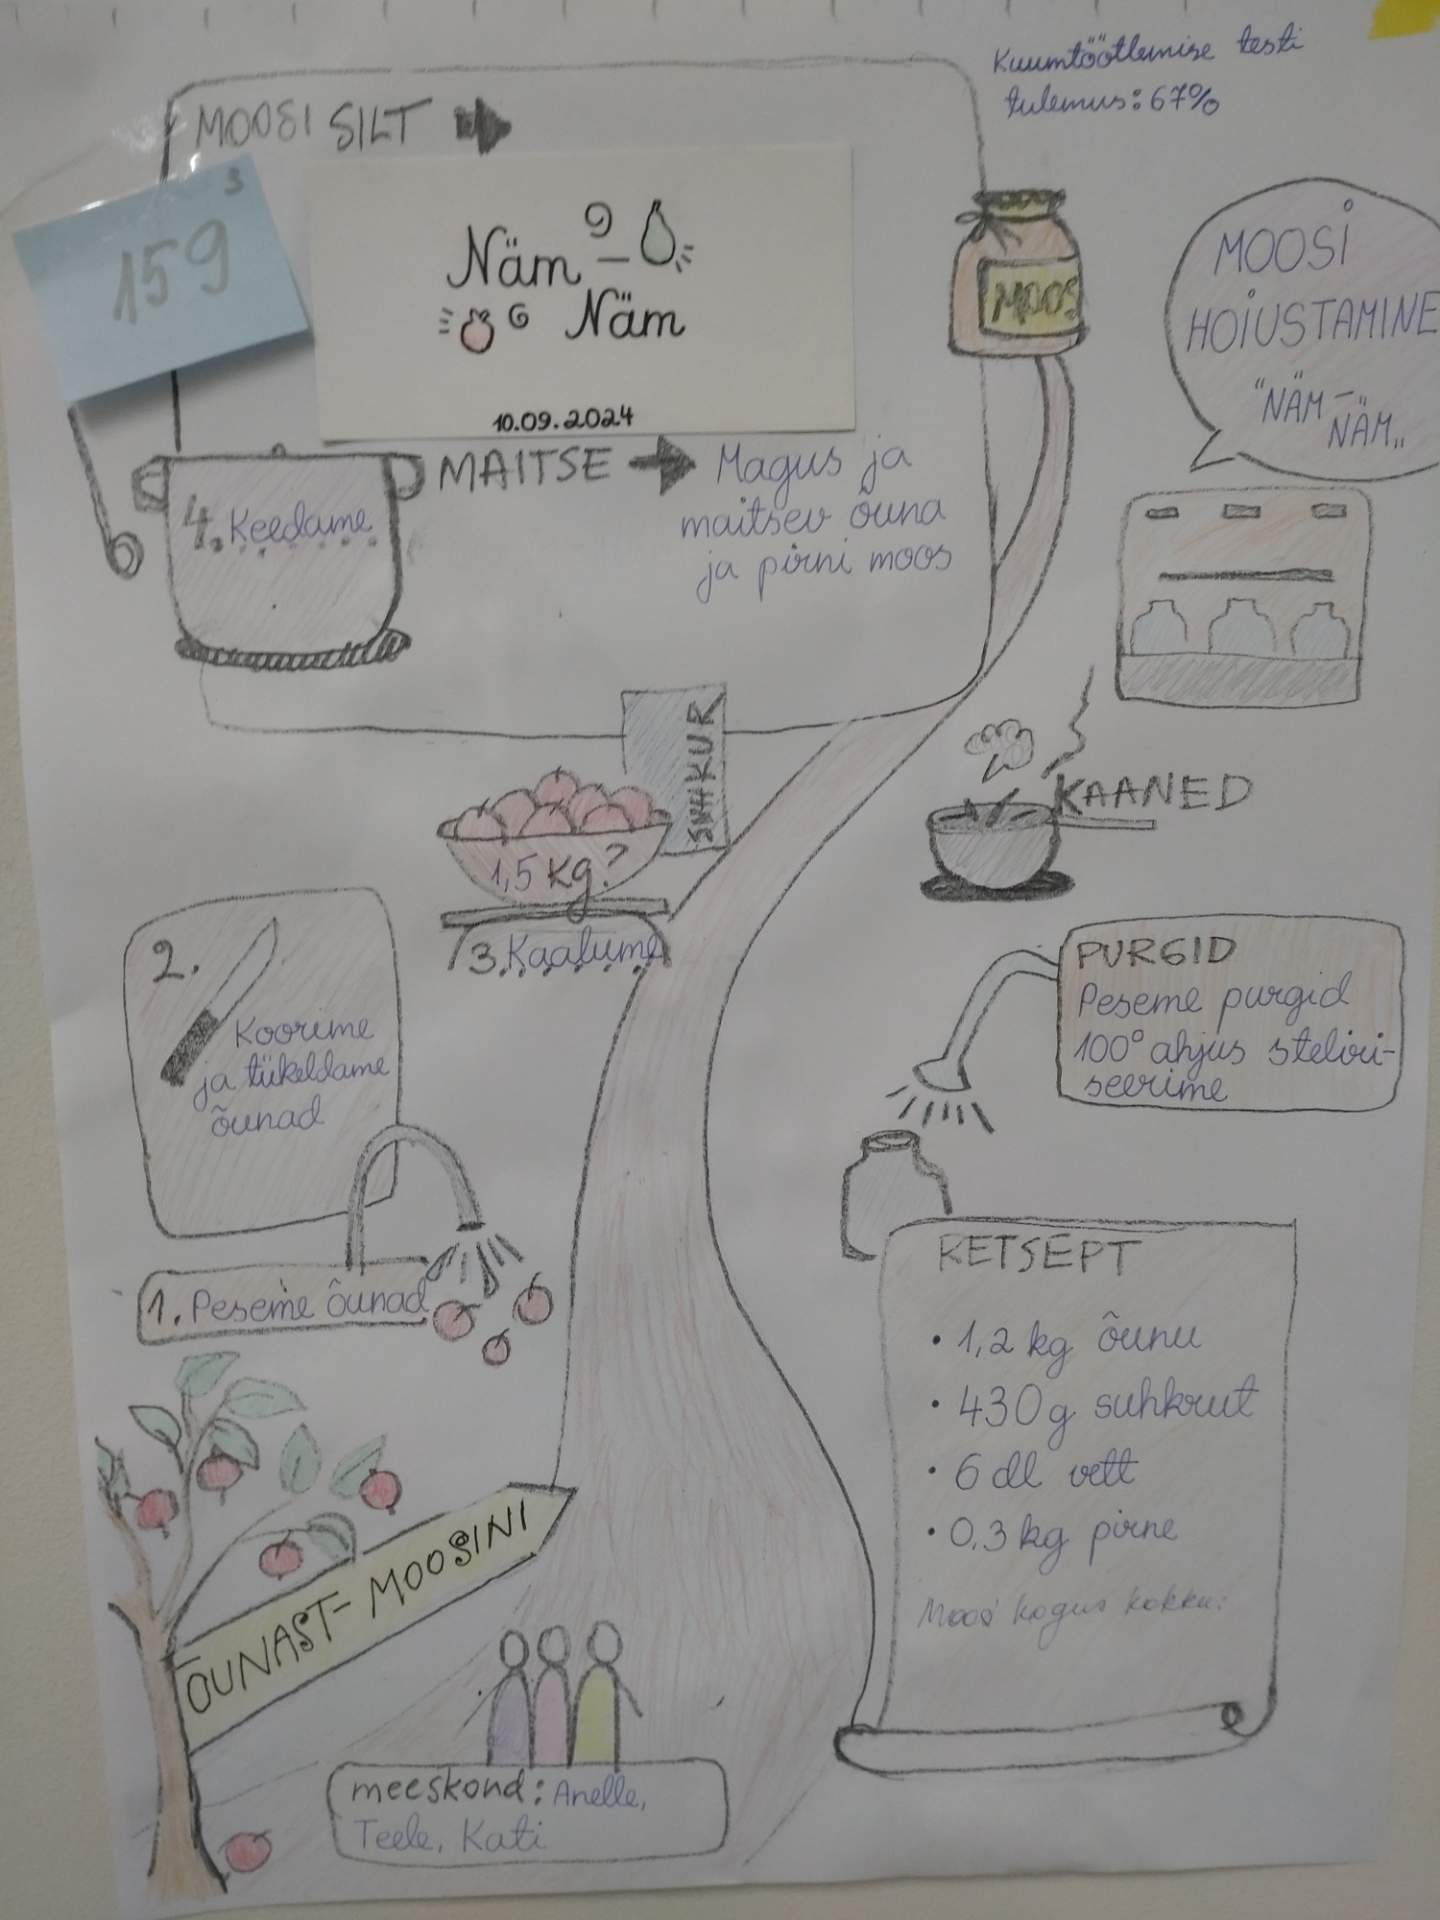 Kuumtöötlemise testi
tulemus: 67%
MOOSI SILT
3
159
Näm -
Näm
10.09.2024
MOOS
MOOSI
HOIUSTAMINE
"NÄM -
NÄM„
MAITSE
Magus ja
maitsev õuna
ja pirni moos
4. Keedame
SUHKUR
1,5 kg?
3. Kaalume
KAANED
2.
Koorime
ja tükeldame
õunad
PURGID
Peseme purgid
100° ahjus steliri-
seerime
1. Peseme õunad
RETSEPT
• 1,2 kg õunu
• 430g suhkrut
• 6 dl vett
• 0,3 kg pirne
Moosi kogus kokku:
ÕUNAST-MOOSINI
meeskond: Anelle,
Teele, Kati